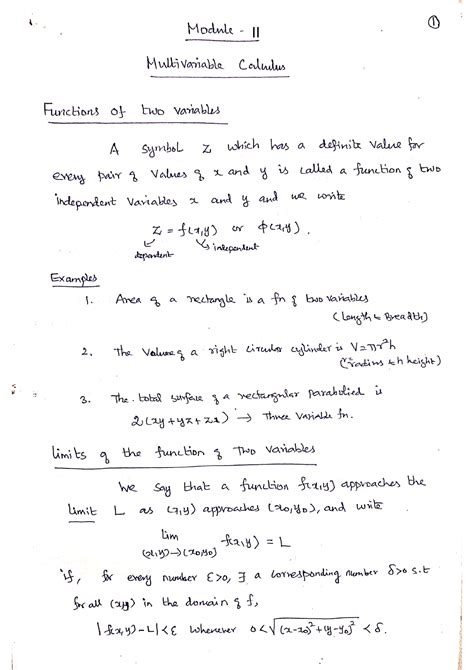 1
Module - II
Multivariable Calculus
Functions of two variables
A symbol Z which has a definite value for
every pair of values of x and y is called a function of two
independent variables x and y and we write
Z = f(x,y) or ϕ(x,y).
dependent independent
Examples
1. Area of a rectangle is a fn of two variables
(Length & Breadth)
2. The Volume of a right circular cylinder is V=πr²h
(r: radius & h height)
3. The total surface of a rectangular parabolied is
2(xy+yz+zx) → Three Variable fn.
Limits of the function of Two variables
We say that a function f(x,y) approaches the
limit L as (x,y) approaches (x₀,y₀), and write
lim f(x,y) = L
(x,y)→(x₀,y₀)
if, for every number ε>0, ∃ a corresponding number δ>0 s.t
for all (x,y) in the domain of f,
|f(x,y)-L|<ε whenever 0<√(x-x₀)²+(y-y₀)² <δ.